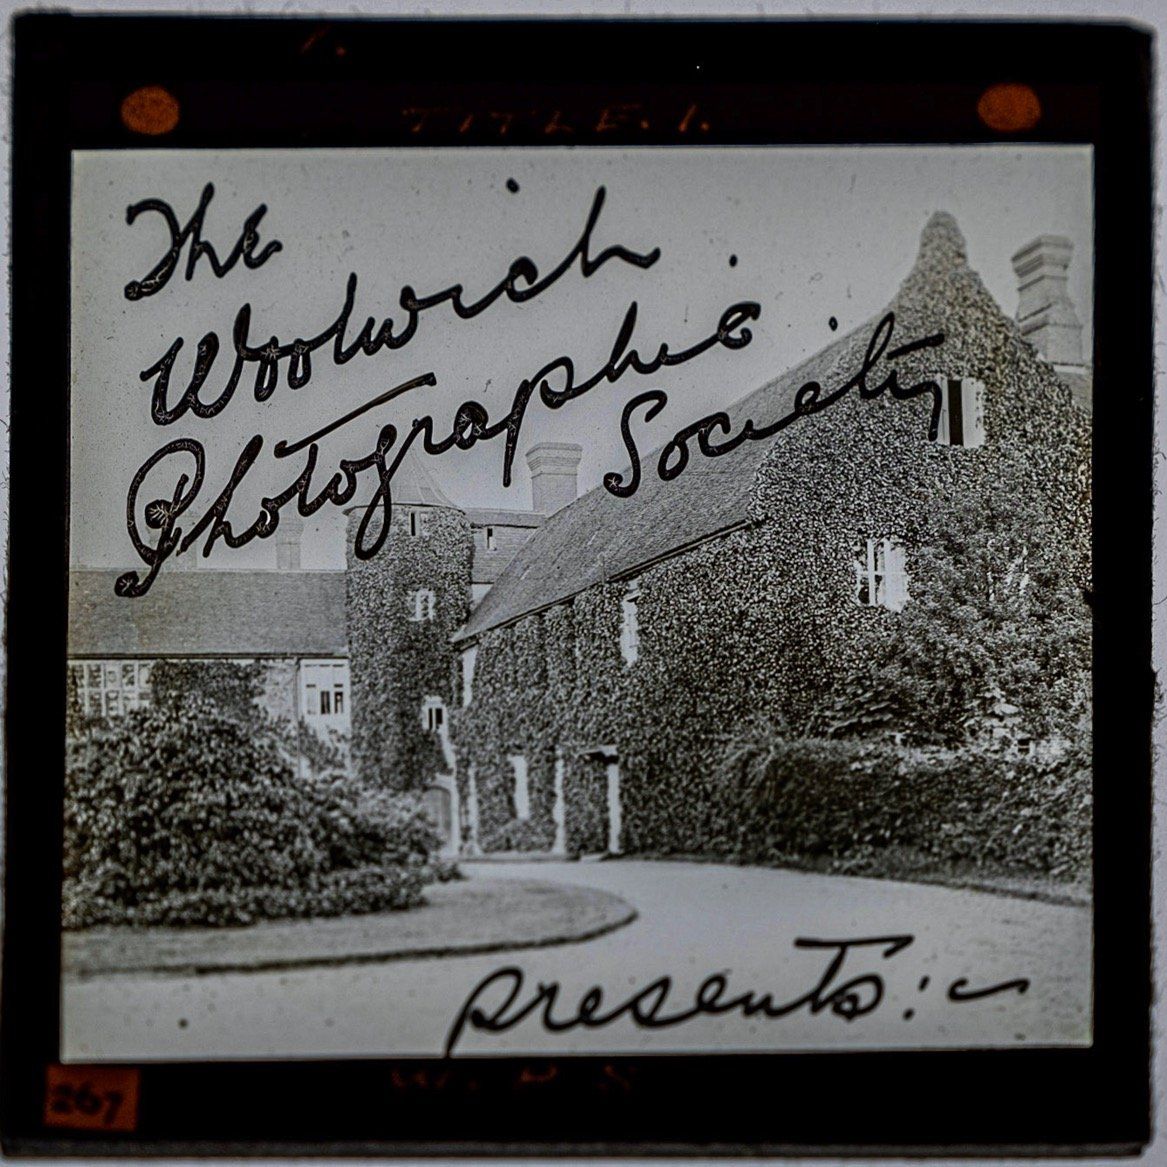 TITLE. 1.
The
Woolwich
Photographic
Society
presents:~
W. P. S
267